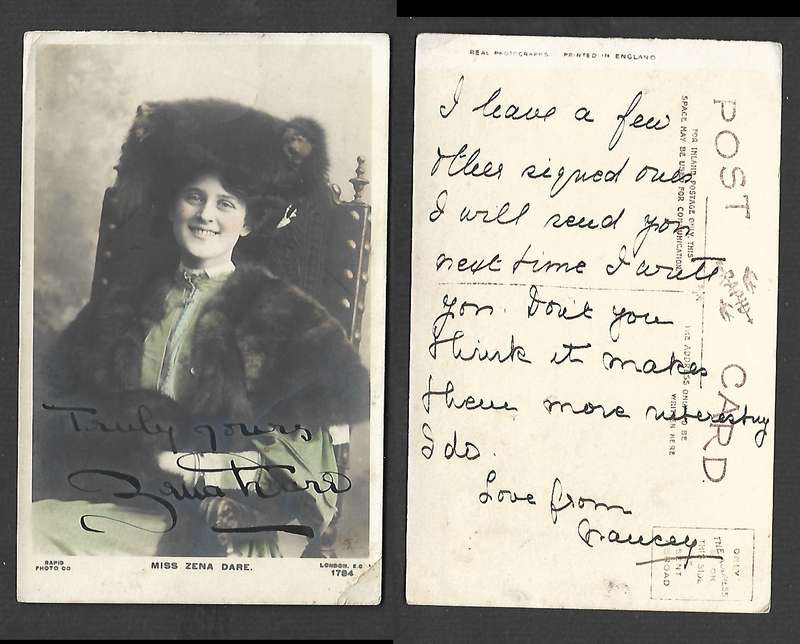 Truly yours
Zena Dare
RAPID
PHOTO CO
MISS ZENA DARE.
LONDON. E.C
1784
REAL PHOTOGRAPHS PRINTED IN ENGLAND
I have a few
other signed ones
I will send you
next time I write
you. Don't you
think it makes
them more interesting
I do.
Love from
Nancey
POST CARD.
FOR INLAND POSTAGE ONLY THIS
SPACE MAY BE USED FOR COMMUNICATION
RAPID
THE ADDRESS ONLY TO BE
WRITTEN HERE
ONLY
THE ADDRESS
ON
THIS SIDE
SENT
ABROAD